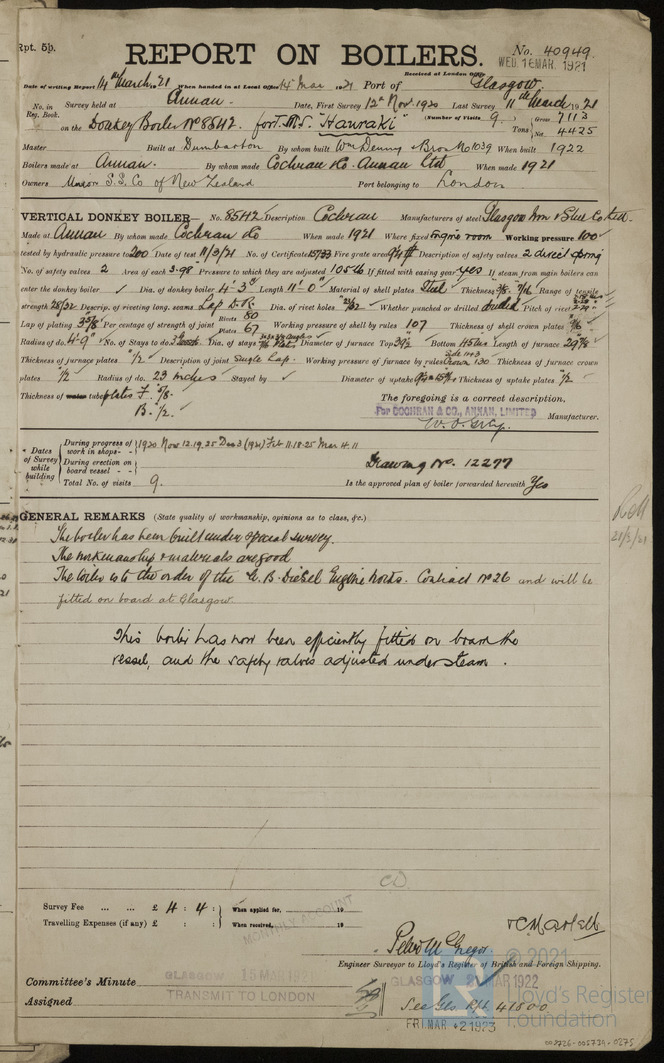 Rpt. 5b.
REPORT ON BOILERS.
No. 40949
WED. 16 MAR. 1921
Received at London Office
Date of writing Report 14th March 21 When handed in at Local Office 14 Mar 1921 Port of Glasgow.
No. in Reg. Book. Survey held at Annan. Date, First Survey 12th Nov. 1920 Last Survey 11th March 1921
(Number of Visits 9.
on the Donkey Boiler No 8542. for T.M.S. "Hauraki" Tons Gross 7113 Net 4425
Master Built at Dumbarton By whom built Wm Denny & Bros No 1039 When built 1922
Boilers made at Annan. By whom made Cochran & Co. Annan Ltd When made 1921
Owners Union S.S. Co of New Zealand Port belonging to London
VERTICAL DONKEY BOILER— No. 8542 Description Cochran Manufacturers of steel Glasgow Iron & Steel Co Ltd.
Made at Annan By whom made Cochran & Co When made 1921 Where fixed Engine room Working pressure 100
tested by hydraulic pressure to 200 Date of test 11/3/21 No. of Certificate 15733 Fire grate area Description of safety valves 2 direct spring
No. of safety valves 2 Area of each 3.98 Pressure to which they are adjusted 105 lb If fitted with easing gear yes If steam from main boilers can
enter the donkey boiler ✓ Dia. of donkey boiler 4'-3" Length 11'-0" Material of shell plates Steel Thickness Range of tensile
strength 28/32 Descrip. of riveting long. seams Lap D.R. Dia. of rivet holes Whether punched or drilled drilled Pitch of rivets
Lap of plating Per centage of strength of joint Rivets 80 Plates 67 Working pressure of shell by rules 107 Thickness of shell crown plates
Radius of do. 4'-9" No. of Stays to do. Dia. of stays Diameter of furnace Top Bottom Length of furnace
Thickness of furnace plates 1/2" Description of joint Single Lap. Working pressure of furnace by rules Crown 130 Thickness of furnace crown
plates "1/2 Radius of do. 23 inches Stayed by ✓ Diameter of uptake Thickness of uptake plates "1/2
Thickness of water tube plates F. "5/8
B. "1/2.
The foregoing is a correct description.
For COCHRAN & CO., ANNAN, LIMITED Manufacturer.
Dates of Survey while building
During progress of work in shops - - 1920 Nov 12.19.25 Dec 3 (1921) Feb 11.18.25 Mar 4.11
During erection on board vessel - - -
Total No. of visits 9.
Drawing No. 12277
Is the approved plan of boiler forwarded herewith Yes
GENERAL REMARKS (State quality of workmanship, opinions as to class, &c.)
The boiler has been built under special survey.
The workmanship & materials are good
The boiler is to the order of the N.B. Diesel Engine Works. Contract No 26 and will be
fitted on board at Glasgow.
This boiler has now been efficiently fitted on board the
vessel, and the safety valves adjusted under steam.
Survey Fee ... ... £ 4 : 4 : When applied for, 19
Travelling Expenses (if any) £ : : When received, 19
MONTHLY ACCOUNT
Peter McGregor
Engineer Surveyor to Lloyd's Register of British and Foreign Shipping.
Committee's Minute GLASGOW 15 MAR 1921 GLASGOW MAR 1922
Assigned TRANSMIT TO LONDON
See Gls Rpt 41800
FRI. MAR. 2 1923
© 2021
Lloyd's Register
Foundation
008726-008734-0275